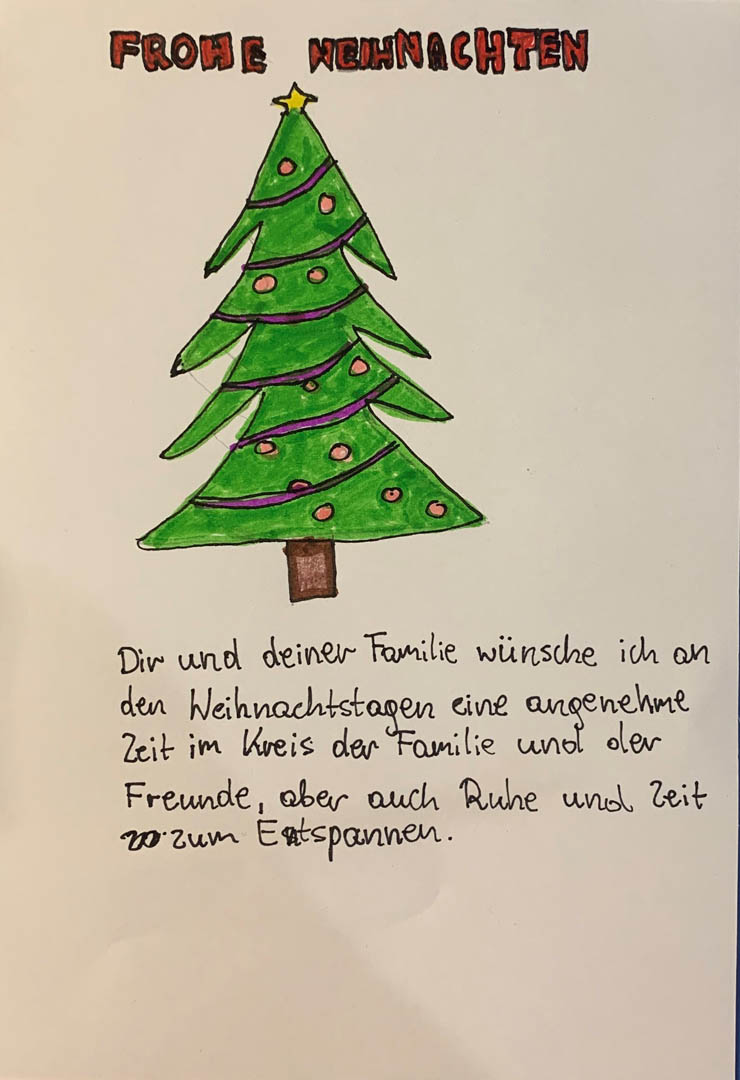 FROHE WEIHNACHTEN
Dir und deiner Familie wünsche ich an
den Weihnachtstagen eine angenehme
Zeit im Kreis der Familie und der
Freunde, aber auch Ruhe und Zeit
zum Entspannen.